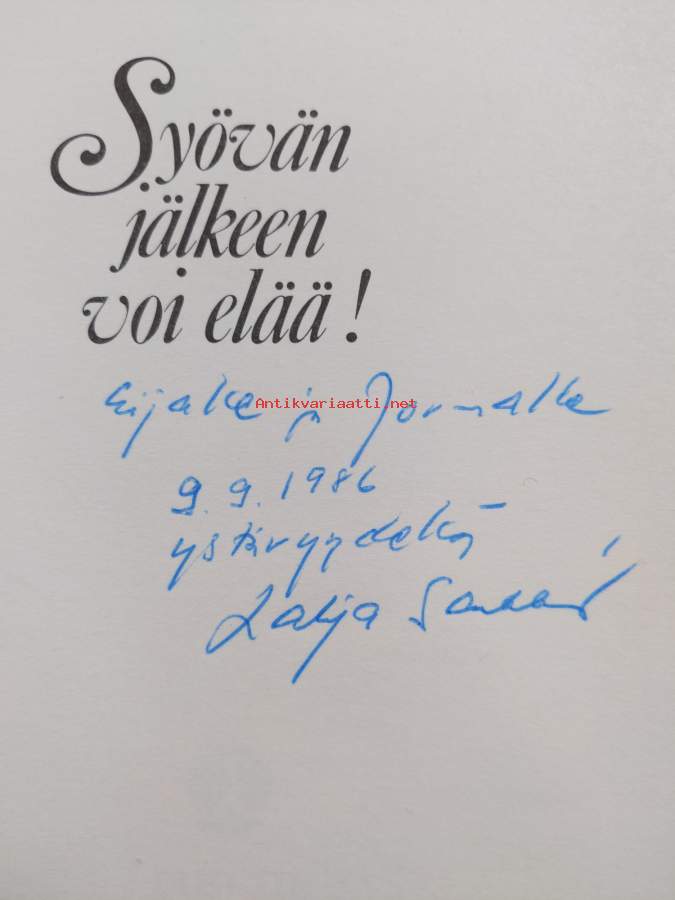 Syövän
jälkeen
voi elää!
Eijalle ja Jormalle
Antikvariaatti.net
9.9.1986
ystävyydellä